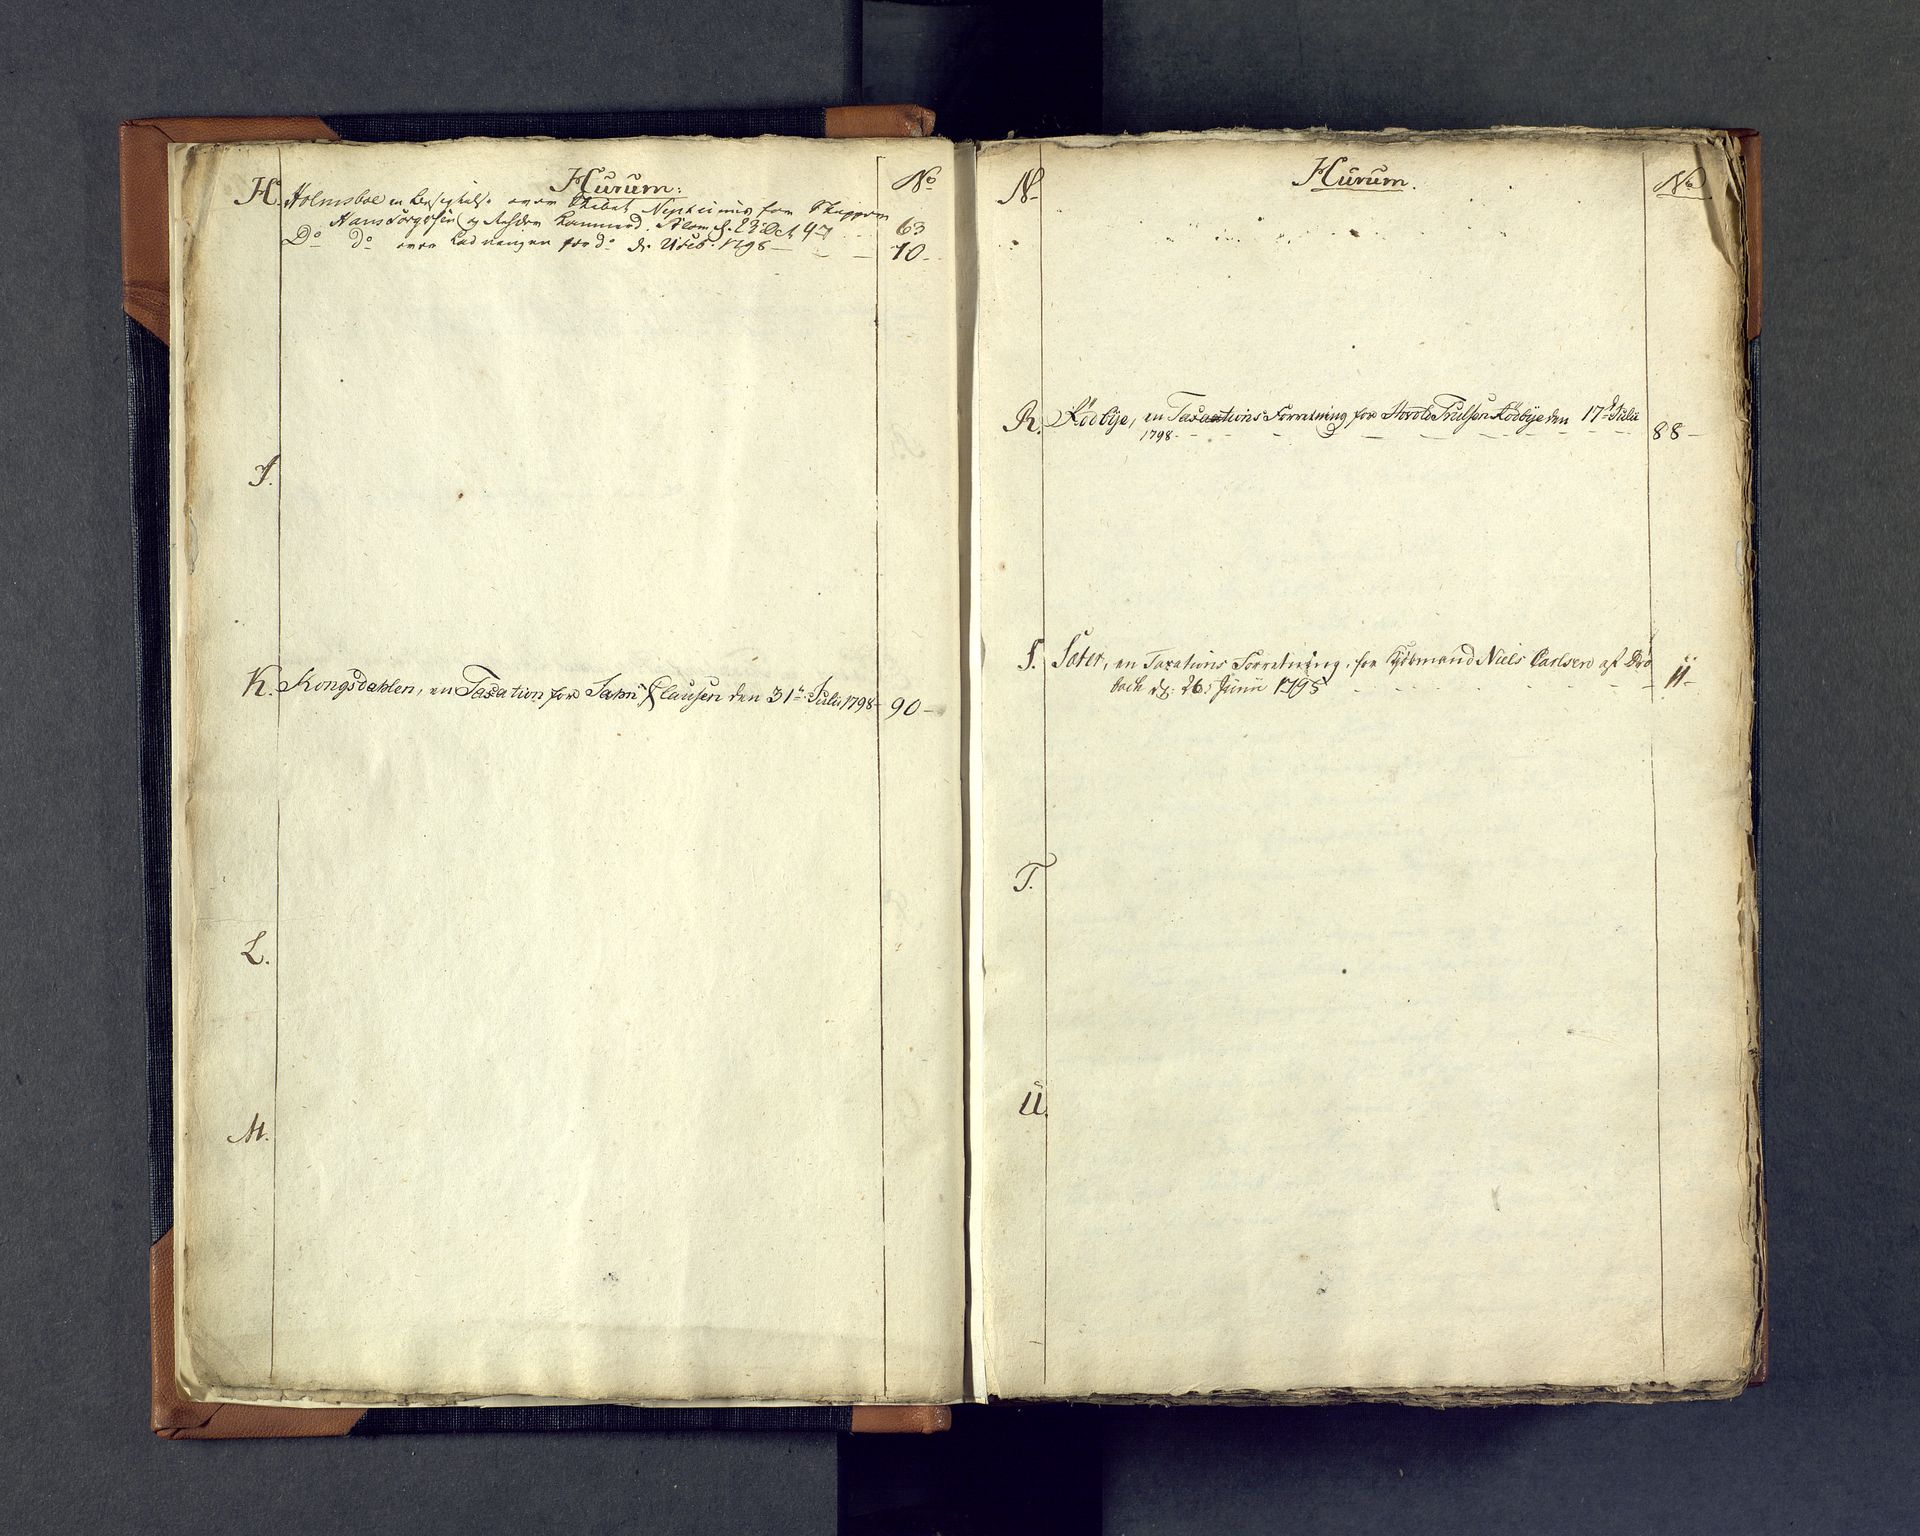 Hurum: No
H. Holmsboe en besigtelse over Skibet Neptunus for Skipper
Hans Jørgensen og Rehder Cammerd. d. 23 Oct 97 63
Do do over Ladningen for do d. 1798 70
I.
K. Kongsdahlen, en Taxation for Clausen den 31te Julii 1798 90
L.
M.
Hurum. No
N.
R. Rödbÿe, en Taxations Forretning for Trulsen Rödbÿe den 17de Julii
1798 88
S. Sæter, en Taxations Forretning, for Kjöbmand Niels Carlsen af Drö
bach d: 26 Junii 1795 11
T.
U.